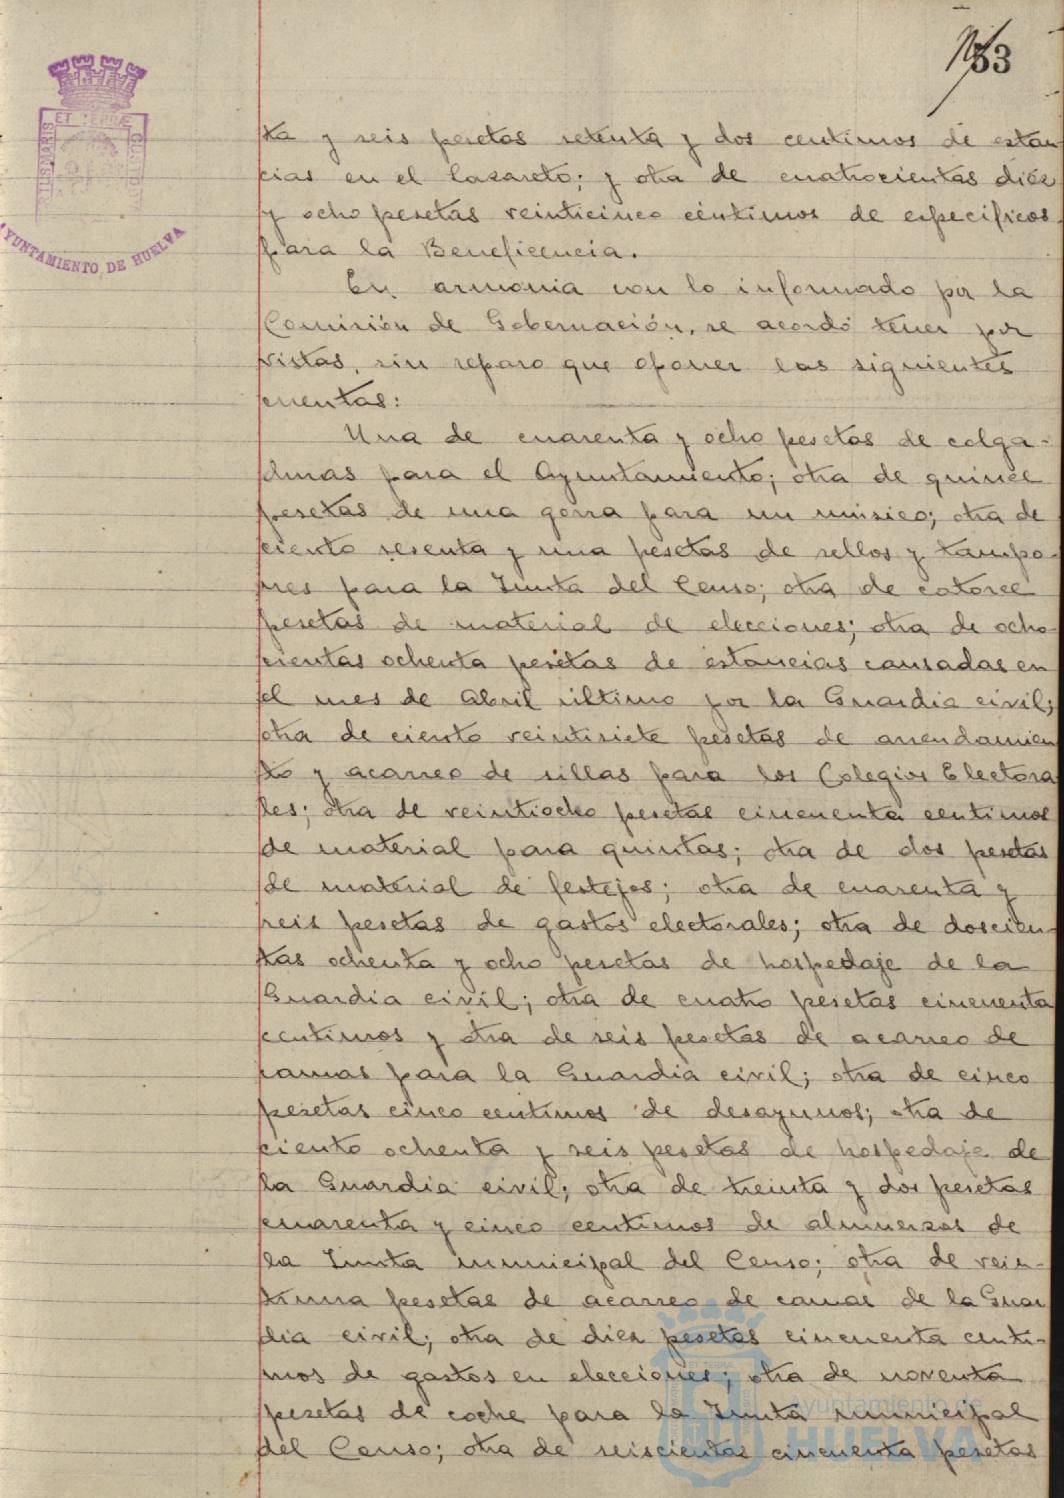 53
ta y seis pesetas setenta y dos centimos de estan
cias en el Lazareto; y otra de cuatrocientas diez
y ocho pesetas veinticinco céntimos de especificos
para la Beneficencia.
En armonia con lo informado por la
Comisión de Gobernación, se acordó tener por
vistas, sin reparo que oponer las siguientes
cuentas:
Una de cuarenta y ocho pesetas de colga-
duras para el Ayuntamiento; otra de quince
pesetas de una gorra para un músico; otra de
ciento sesenta y una pesetas de sellos y tampo-
nes para la Junta del Censo; otra de catorce
pesetas de material de elecciones; otra de ocho
cientas ochenta pesetas de estancias causadas en
el mes de Abril último por la Guardia civil;
otra de ciento veintisiete pesetas de arrendamien
to y acarreo de sillas para los Colegios Electora
les; otra de veintiocho pesetas cincuenta centimos
de material para quintas; otra de dos pesetas
de material de festejos; otra de cuarenta y
seis pesetas de gastos electorales; otra de doscien-
tas ochenta y ocho pesetas de hospedaje de la
Guardia civil; otra de cuatro pesetas cincuenta
centimos y otra de seis pesetas de acarreo de
camas para la Guardia civil; otra de cinco
pesetas cinco centimos de desayunos; otra de
ciento ochenta y seis pesetas de hospedaje de
la Guardia civil; otra de treinta y dos pesetas
cuarenta y cinco centimos de almuerzos de
la Junta municipal del Censo; otra de vein-
tiuna pesetas de acarreo de camas de la Guar
dia civil; otra de diez pesetas cincuenta centi-
mos de gastos en elecciones; otra de noventa
pesetas de coche para la Junta municipal
del Censo; otra de seiscientas cincuenta pesetas
ET TERRAE
AYUNTAMIENTO DE HUELVA
Ayuntamiento de
HUELVA